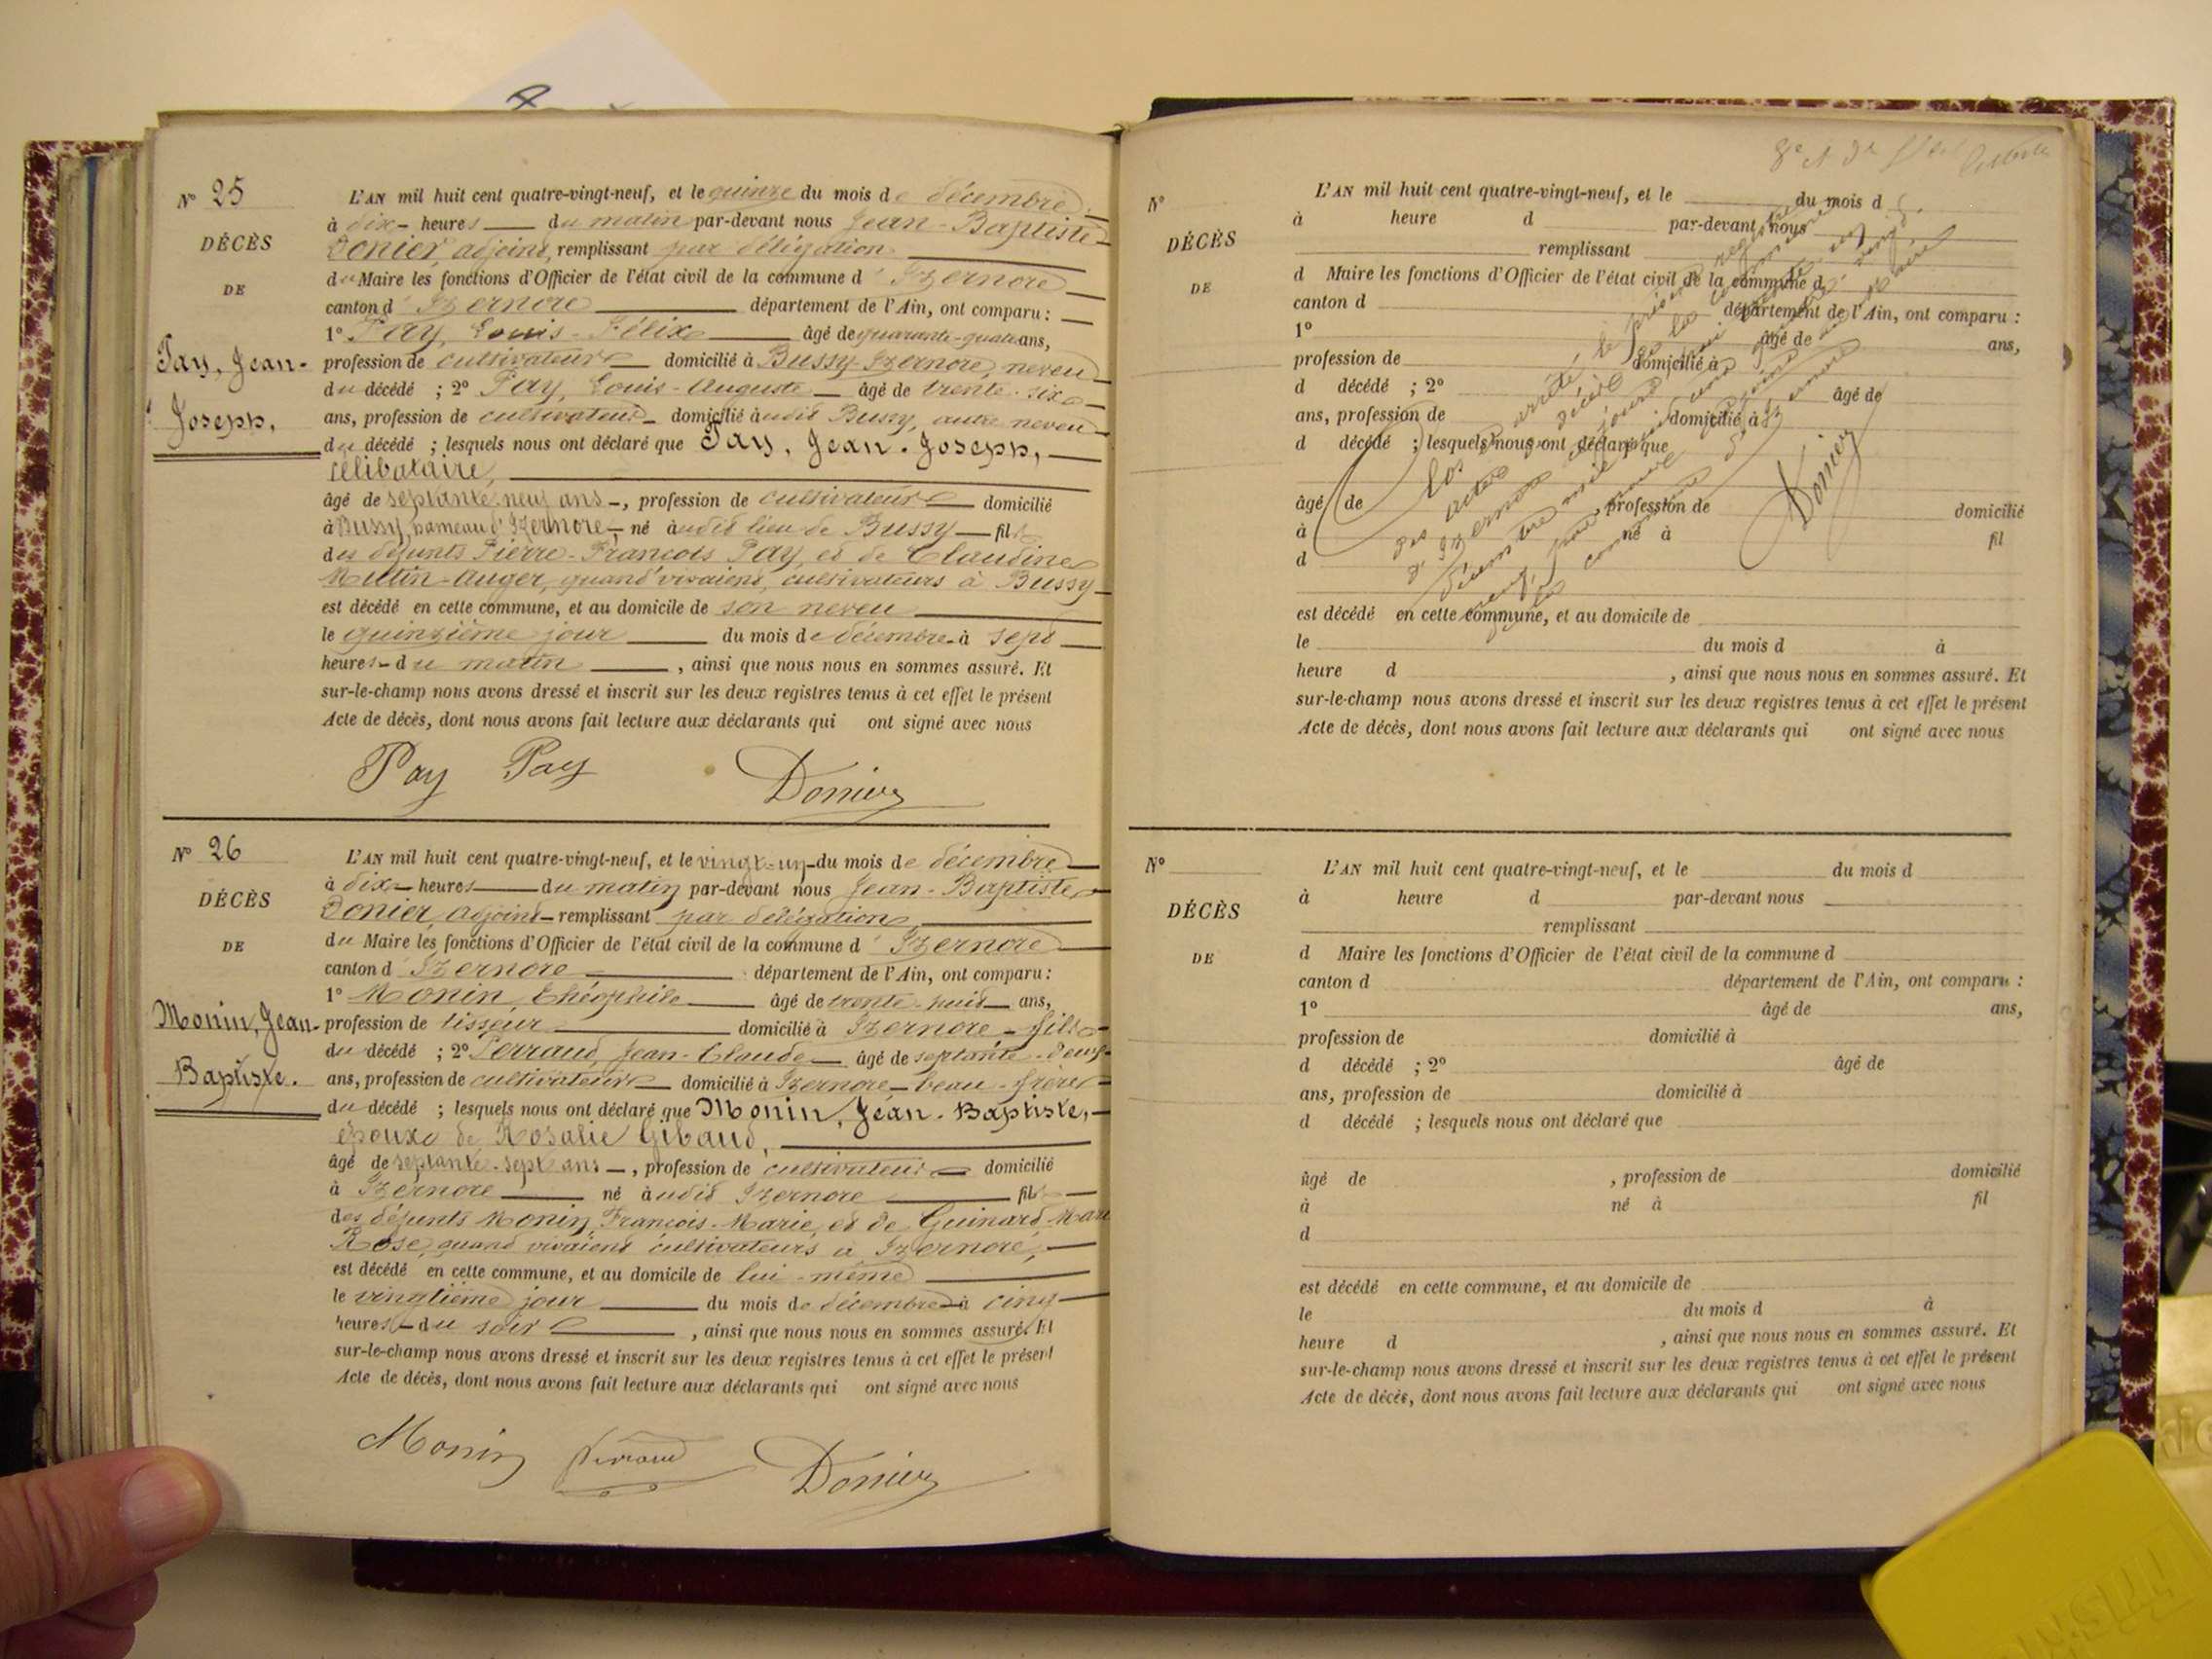 N° 25
DÉCÈS
DE
Pay, Jean-
Joseph,
L'AN mil huit cent quatre-vingt-neuf, et le quinze du mois de décembre
à dix heures du matin par-devant nous Jean-Baptiste
Donier, adjoint, remplissant par délégation
du Maire les fonctions d'Officier de l'état civil de la commune d'Izernore
canton d'Izernore département de l'Ain, ont comparu :
1° Pay, Louis-Félix âgé de quarante-quatre ans,
profession de cultivateur domicilié à Bussy-Izernore, neveu
du décédé ; 2° Pay, Louis-Auguste âgé de trente-six
ans, profession de cultivateur domicilié à udit Bussy, autre neveu
du décédé ; lesquels nous ont déclaré que Pay, Jean-Joseph,
célibataire,
âgé de septante-neuf ans, profession de cultivateur domicilié
à Bussy, hameau d'Izernore, né à udit lieu de Bussy fils
des défunts Pierre-François Pay, et de Claudine
Mutin-Auger, quand vivaient, cultivateurs à Bussy
est décédé en cette commune, et au domicile de son neveu
le quinzième jour du mois de décembre à sept
heures du matin, ainsi que nous nous en sommes assuré. Et
sur-le-champ nous avons dressé et inscrit sur les deux registres tenus à cet effet le présent
Acte de décès, dont nous avons fait lecture aux déclarants qui ont signé avec nous
Pay Pay Donier
N° 26
DÉCÈS
DE
Monin, Jean-
Baptiste.
L'AN mil huit cent quatre-vingt-neuf, et le vingt-un du mois de décembre
à dix heures du matin par-devant nous Jean-Baptiste
Donier, adjoint remplissant par délégation
du Maire les fonctions d'Officier de l'état civil de la commune d'Izernore
canton d'Izernore département de l'Ain, ont comparu :
1° Monin, Théophile âgé de trente-huit ans,
profession de tisseur domicilié à Izernore fils
du décédé ; 2° Perraud, Jean-Claude âgé de septante-deux
ans, profession de cultivateur domicilié à Izernore beau-frère
du décédé ; lesquels nous ont déclaré que Monin, Jean-Baptiste,
époux de Rosalie Gibaud,
âgé de septante-sept ans, profession de cultivateur domicilié
à Izernore né à udit Izernore fils
des défunts Monin, François-Marie, et de Guinard, Marie
Rose, quand vivaient cultivateurs à Izernore,
est décédé en cette commune, et au domicile de lui-même
le vingtième jour du mois de décembre à cinq
heures du soir, ainsi que nous nous en sommes assuré. Et
sur-le-champ nous avons dressé et inscrit sur les deux registres tenus à cet effet le présent
Acte de décès, dont nous avons fait lecture aux déclarants qui ont signé avec nous
Monin Perraud Donier
N°
DÉCÈS
DE
L'AN mil huit cent quatre-vingt-neuf, et le du mois d
à heure d par-devant nous
remplissant
d Maire les fonctions d'Officier de l'état civil de la commune d
canton d département de l'Ain, ont comparu :
1° âgé de ans,
profession de domicilié à
d décédé ; 2° âgé de
ans, profession de domicilié à
d décédé ; lesquels nous ont déclaré que
âgé de , profession de domicilié
à né à fil
d
est décédé en cette commune, et au domicile de
le du mois d à
heure d , ainsi que nous nous en sommes assuré. Et
sur-le-champ nous avons dressé et inscrit sur les deux registres tenus à cet effet le présent
Acte de décès, dont nous avons fait lecture aux déclarants qui ont signé avec nous
Clos et arrêté le présent registre
des actes de décès de la commune
d'Izernore
Donier
N°
DÉCÈS
DE
L'AN mil huit cent quatre-vingt-neuf, et le du mois d
à heure d par-devant nous
remplissant
d Maire les fonctions d'Officier de l'état civil de la commune d
canton d département de l'Ain, ont comparu :
1° âgé de ans,
profession de domicilié à
d décédé ; 2° âgé de
ans, profession de domicilié à
d décédé ; lesquels nous ont déclaré que
âgé de , profession de domicilié
à né à fil
d
est décédé en cette commune, et au domicile de
le du mois d à
heure d , ainsi que nous nous en sommes assuré. Et
sur-le-champ nous avons dressé et inscrit sur les deux registres tenus à cet effet le présent
Acte de décès, dont nous avons fait lecture aux déclarants qui ont signé avec nous